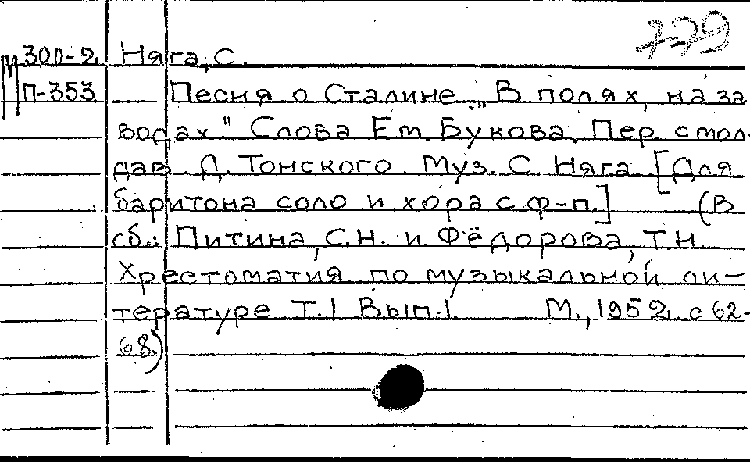 779
М 300-2 Няга, С.
П-353 Песня о Сталине „В полях, на за
водах" Слова Ем. Букова. Пер. с мол-
дав. Д. Томского Муз. С. Няга [Для
баритона соло и хора с ф-п.] (В
сб.: Питина, С.Н. и Фёдорова, Т.Н.
Хрестоматия по музыкальной ли-
тературе Т.1 Вып.1. М., 1952 с 62-
68)